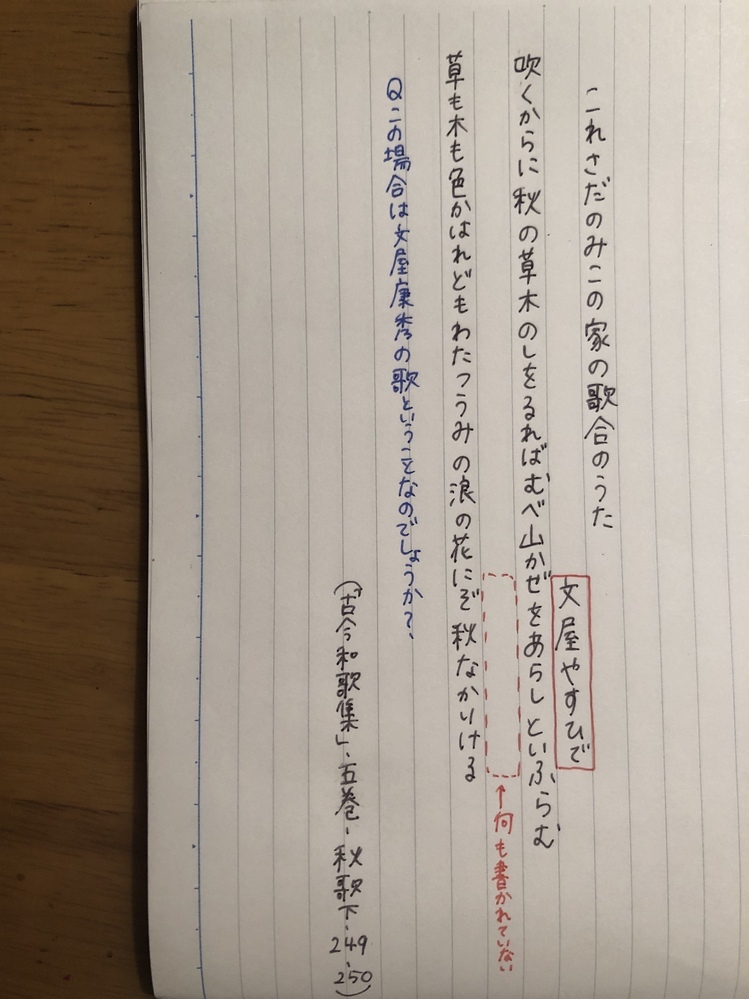 これさだのみこの家の歌合のうた
文屋やすひで
吹くからに秋の草木のしをるればむべ山かぜをあらしといふらむ
↑何も書かれていない
草も木も色かはれどもわたつうみの浪の花にぞ秋なかりける
Qこの場合は文屋康秀の歌ということなのでしょうか?、
(「古今和歌集」、五巻、秋歌下、249、250)